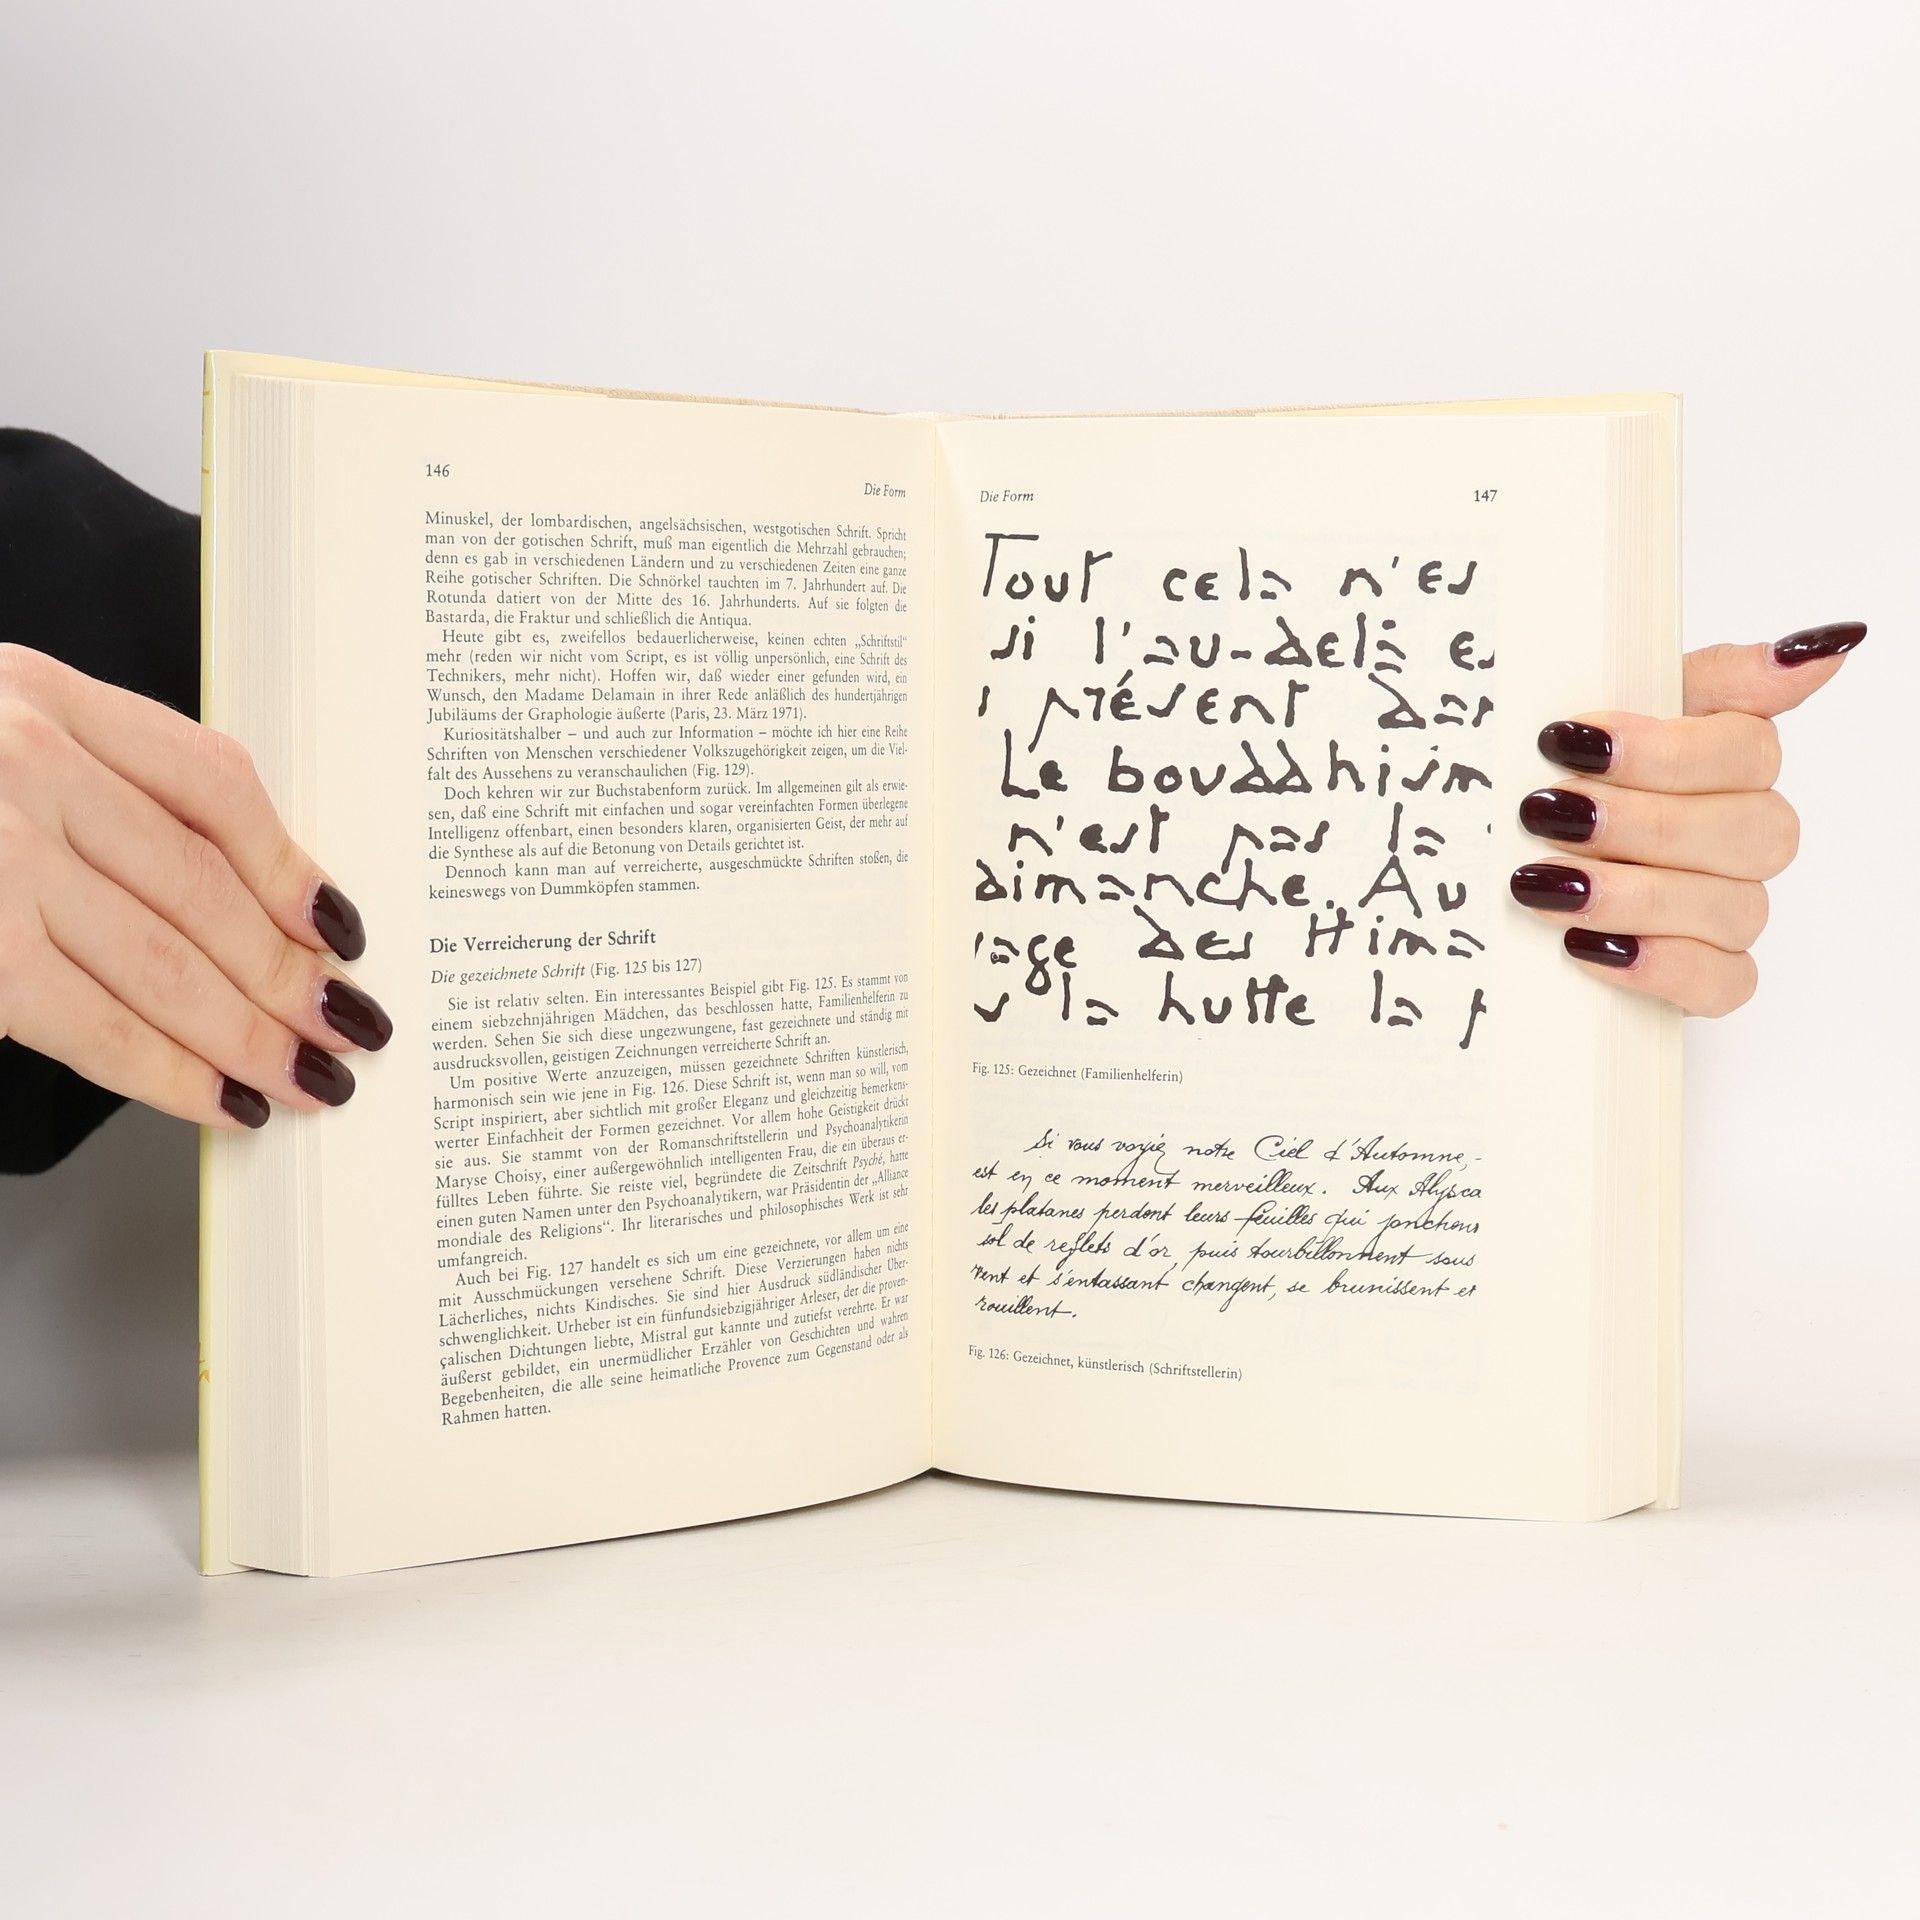 146
Die Form
Minuskel, der lombardischen, angelsächsischen, westgotischen Schrift. Spricht
man von der gotischen Schrift, muß man eigentlich die Mehrzahl gebrauchen;
denn es gab in verschiedenen Ländern und zu verschiedenen Zeiten eine ganze
Reihe gotischer Schriften. Die Schnörkel tauchten im 7. Jahrhundert auf. Die
Rotunda datiert von der Mitte des 16. Jahrhunderts. Auf sie folgten die
Bastarda, die Fraktur und schließlich die Antiqua.
Heute gibt es, zweifellos bedauerlicherweise, keinen echten „Schriftstil“
mehr (reden wir nicht vom Script, es ist völlig unpersönlich, eine Schrift des
Technikers, mehr nicht). Hoffen wir, daß wieder einer gefunden wird, ein
Wunsch, den Madame Delamain in ihrer Rede anläßlich des hundertjährigen
Jubiläums der Graphologie äußerte (Paris, 23. März 1971).
Kuriositätshalber – und auch zur Information – möchte ich hier eine Reihe
Schriften von Menschen verschiedener Volkszugehörigkeit zeigen, um die Viel-
falt des Aussehens zu veranschaulichen (Fig. 129).
Doch kehren wir zur Buchstabenform zurück. Im allgemeinen gilt als erwie-
sen, daß eine Schrift mit einfachen und sogar vereinfachten Formen überlegene
Intelligenz offenbart, einen besonders klaren, organisierten Geist, der mehr auf
die Synthese als auf die Betonung von Details gerichtet ist.
Dennoch kann man auf verreicherte, ausgeschmückte Schriften stoßen, die
keineswegs von Dummköpfen stammen.
Die Verreicherung der Schrift
Die gezeichnete Schrift (Fig. 125 bis 127)
Sie ist relativ selten. Ein interessantes Beispiel gibt Fig. 125. Es stammt von
einem siebzehnjährigen Mädchen, das beschlossen hatte, Familienhelferin zu
werden. Sehen Sie sich diese ungezwungene, fast gezeichnete und ständig mit
ausdrucksvollen, geistigen Zeichnungen verreicherte Schrift an.
Um positive Werte anzuzeigen, müssen gezeichnete Schriften künstlerisch,
harmonisch sein wie jene in Fig. 126. Diese Schrift ist, wenn man so will, vom
Script inspiriert, aber sichtlich mit großer Eleganz und gleichzeitig bemerkens-
werter Einfachheit der Formen gezeichnet. Vor allem hohe Geistigkeit drückt
sie aus. Sie stammt von der Romanschriftstellerin und Psychoanalytikerin
Maryse Choisy, einer außergewöhnlich intelligenten Frau, die ein überaus er-
fülltes Leben führte. Sie reiste viel, begründete die Zeitschrift Psyché, hatte
einen guten Namen unter den Psychoanalytikern, war Präsidentin der „Alliance
mondiale des Religions“. Ihr literarisches und philosophisches Werk ist sehr
umfangreich.
Auch bei Fig. 127 handelt es sich um eine gezeichnete, vor allem um eine
mit Ausschmückungen versehene Schrift. Diese Verzierungen haben nichts
Lächerliches, nichts Kindisches. Sie sind hier Ausdruck südländischer Über-
schwenglichkeit. Urheber ist ein fünfundsiebzigjähriger Arleser, der die proven-
çalischen Dichtungen liebte, Mistral gut kannte und zutiefst verehrte. Er war
äußerst gebildet, ein unermüdlicher Erzähler von Geschichten und wahren
Begebenheiten, die alle seine heimatliche Provence zum Gegenstand oder als
Rahmen hatten.
Die Form
147
Tout cela n'es
si l'au-delà es
présent dan
Le bouddhism
n'est pas la
dimanche. Au
age des Hima
s la hutte la p
Fig. 125: Gezeichnet (Familienhelferin)
Si vous voyiez notre Ciel d'Automne,-
est en ce moment merveilleux. Aux Alysca
les platanes perdent leurs feuilles qui jonchent
sol de reflets d'or, puis tourbillonnent sous
vent et s'entassant, changent, se brunissent et
rouillent.
Fig. 126: Gezeichnet, künstlerisch (Schriftstellerin)